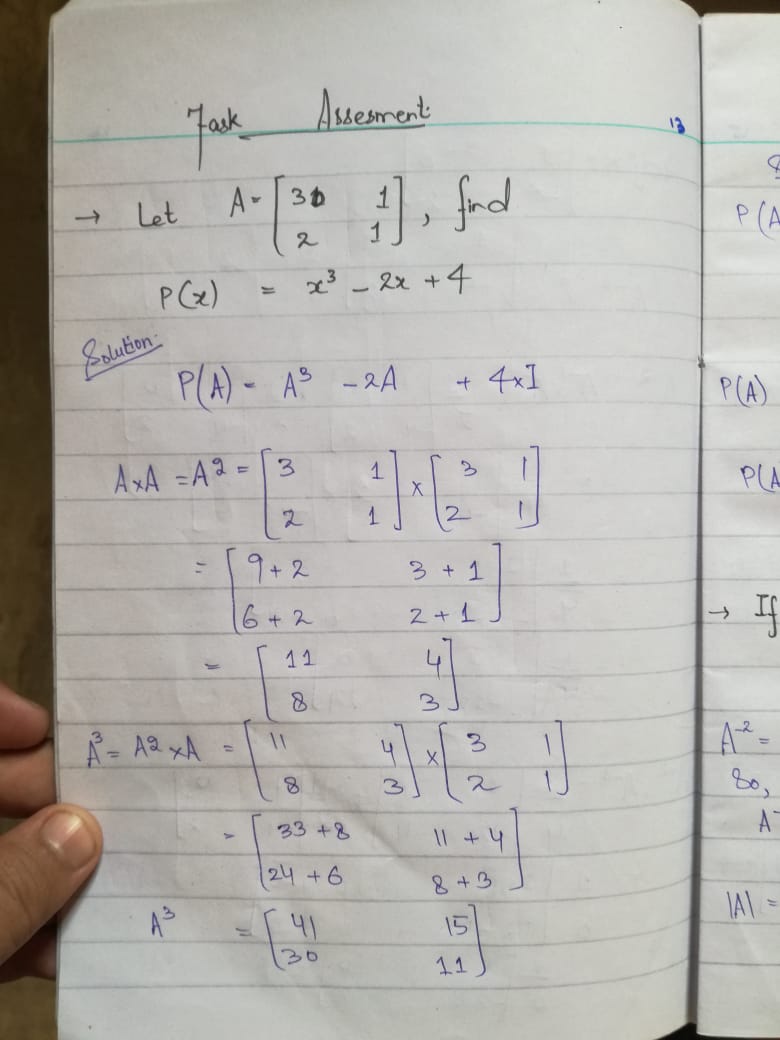 Task Assesment
13
→ Let A = [3 1; 2 1], find
P(x) = x³ - 2x + 4
Solution:
P(A) = A³ - 2A + 4×I
A×A = A² = [3 1; 2 1] × [3 1; 2 1]
= [9+2 3+1; 6+2 2+1]
= [11 4; 8 3]
A³ = A² × A = [11 4; 8 3] × [3 1; 2 1]
= [33+8 11+4; 24+6 8+3]
A³ = [41 15; 30 11]
P(A
P(A)
P(A
→ If
A⁻² =
So,
A⁻
|A| =